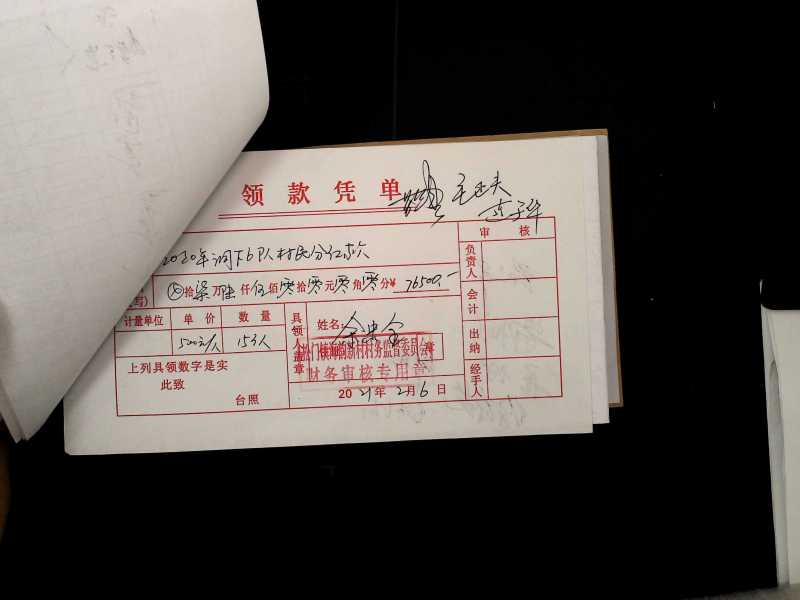 领款凭单
审核
2020年洞下6队村民分红款
负责人
写)
拾柒万陆仟伍佰零拾零元零角零分¥ 76500.-
会计
计量单位 单价 数量
具领人盖章
姓名:
500元/人 153人
出纳
村务监督委员会
财务审核专用章
上列具领数字是实
此致
台照
2021年2月6日
经手人